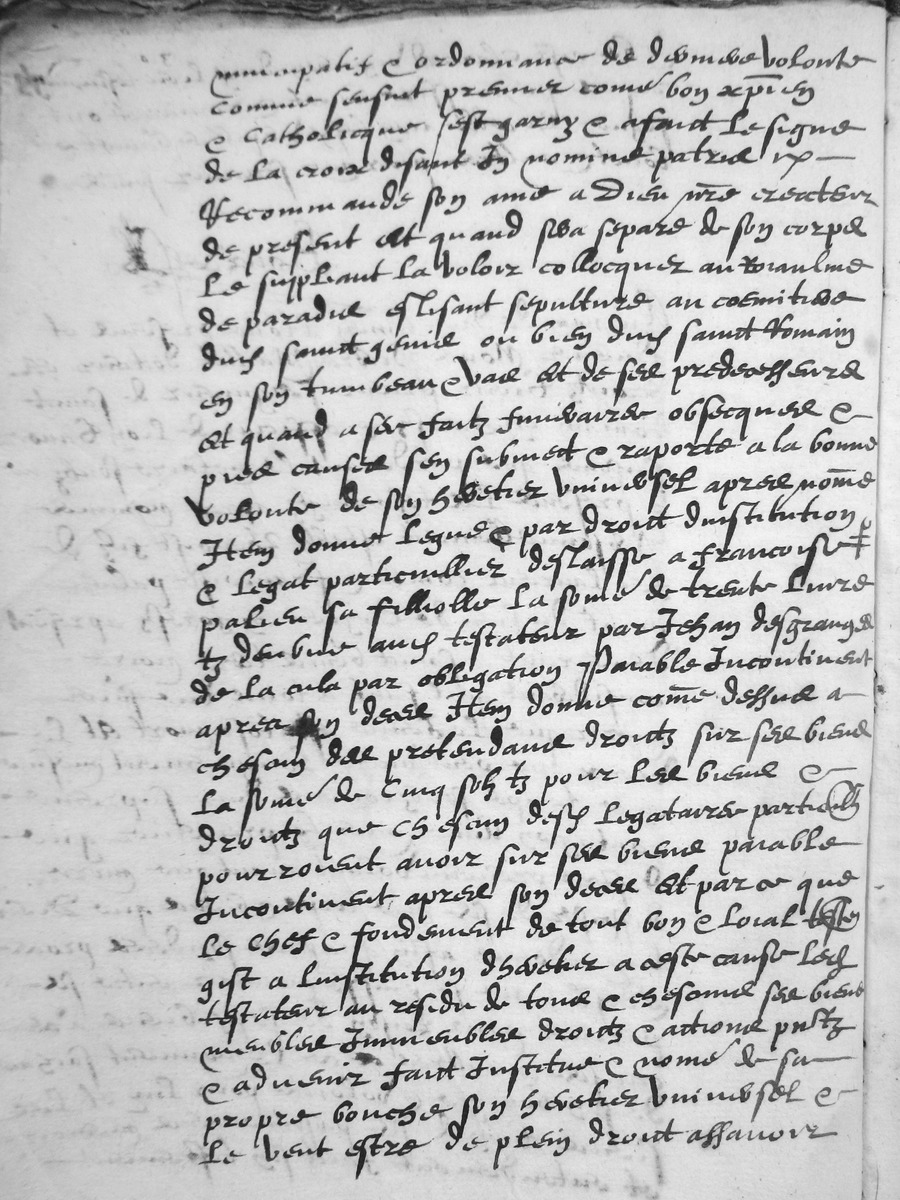 nuncupatif & ordonnance de derniere volonte
comme sensuit premier come bon xpien
& Catholicque sest garny & a faict le signe
de la croix disant In nomine patris
Recommande son ame a Dieu nre createur
de present et quand sera separe de son corps
le suppliant la voloir collocquer au Roiaulme
de paradis eslisant sepulture au cemitiere
dud sainct genis ou bien dud sainct Romain
en son tumbeau & vas et de ses predecesseurs
et quand a ses faitz funeraires obsecques &
pies causes sen submect & raporte a la bonne
volonte de son heretier universel apres nome
Item donne legue & par droict dinstitution
& legat particullier deslaisse a francoise
palieu sa fillolle la some de trente livres
tz deubue aud testateur par Jehan desgranges
de la cula par obligation Paiable Incontinent
apres son deces Item donne come dessus a
chescun des pretendans droictz sur ses biens
la some de Cinq solz tz pour les biens &
droictz que chescun desd legataires particulli
pourroient avoir sur ses biens paiable
Incontinent apres son deces et par ce que
le chef & fondement de tout bon & loial testen
gist a linstitution dheretier a ceste cause led
testateur au residu de tous & chescuns ses biens
meubles Immeubles droictz & actions pntz
& advenir faict Institue & nome de sa
propre bouche son heretier universel &
le veut estre de plein droict assavoir